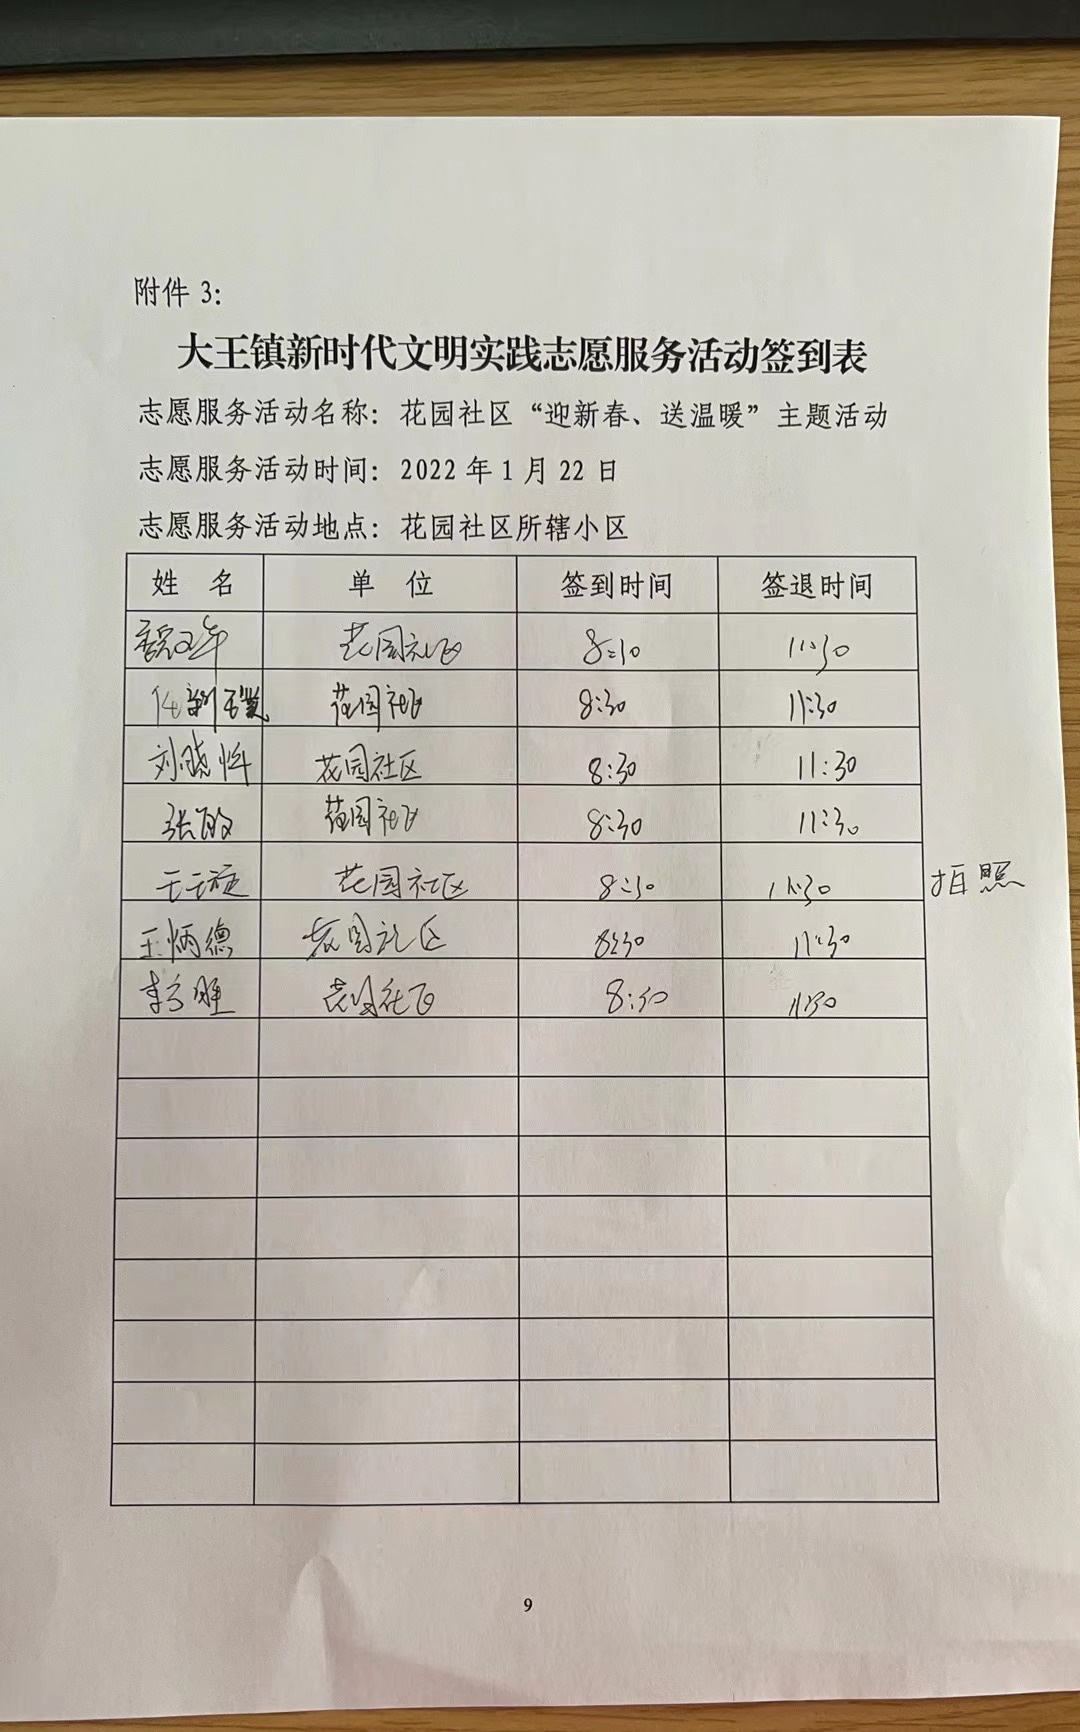 附件 3:
大王镇新时代文明实践志愿服务活动签到表
志愿服务活动名称: 花园社区“迎新春、送温暖”主题活动
志愿服务活动时间: 2022 年 1 月 22 日
志愿服务活动地点: 花园社区所辖小区
姓 名 单 位 签到时间 签退时间
花园社区 8:30 11:30
花园社区 8:30 11:30
刘晓 花园社区 8:30 11:30
张敏 花园社区 8:30 11:30
花园社区 8:30 11:30 拍照
王炳德 花园社区 8:30 11:30
李 花园社区 8:30 11:30
9